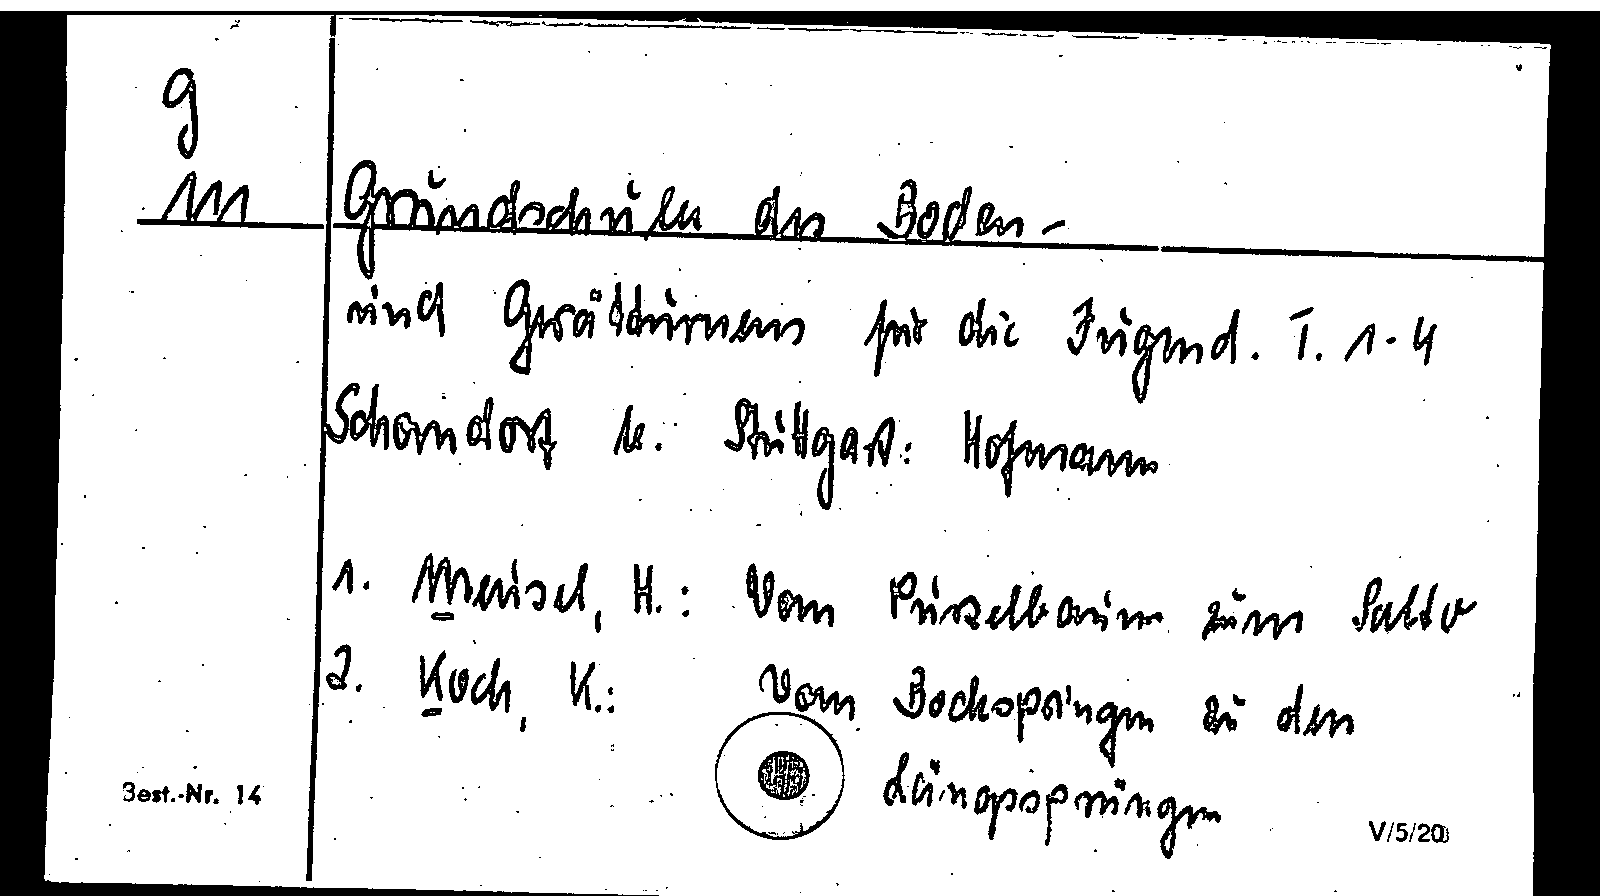 g
111
Grundschule des Boden-
und Gerätturnens für die Jugend. T. 1-4
Schorndorf b. Stuttgart: Hofmann
1. Meusel, H.: Vom Purzelbaum zum Salto
2. Koch, K.: Vom Bockspringen zu den
Längssprüngen
Best.-Nr. 14
V/5/20